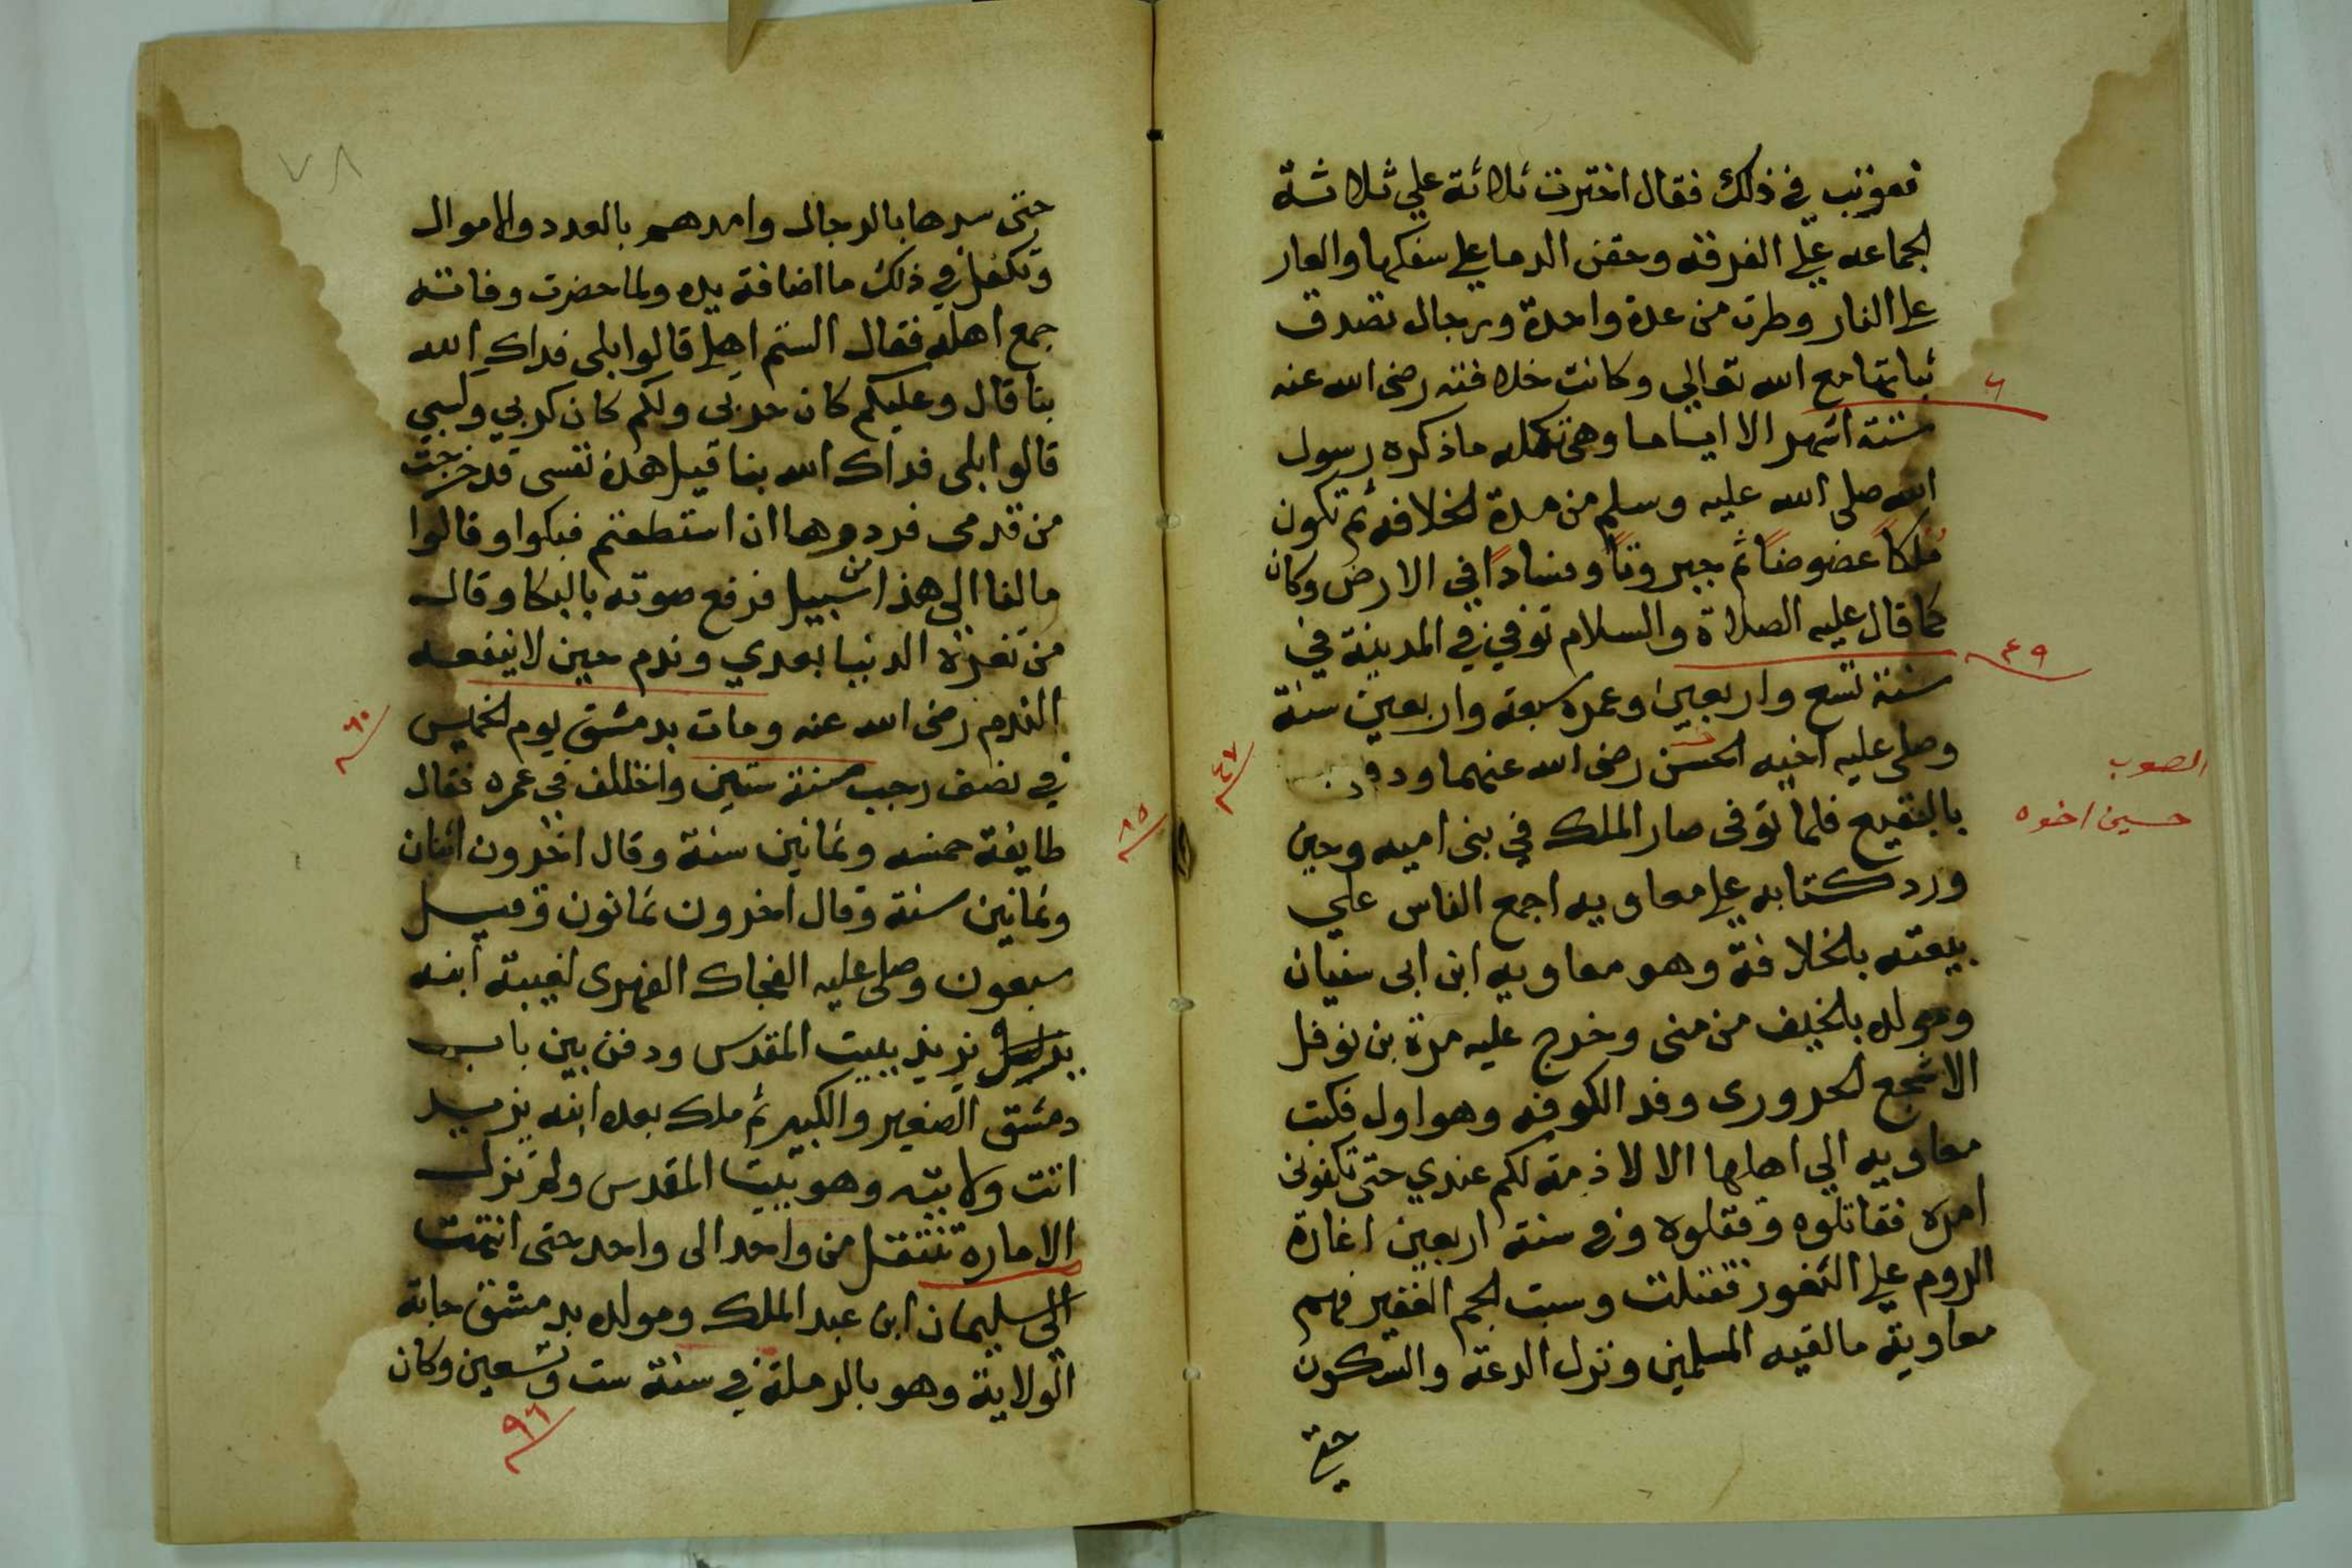 فعوتب في ذلك فقال اخترت ثلاثة علي ثلاثة
الجماعه علي الفرقه وحقن الدما علي سفكها والعار
علي النار وطرت من عدة واحدة ورجال تصدق
نياتها مع الله تعالي وكانت خلافته رضى الله عنه
ستة اشهر الا اياما وهى تكمله ماذكره رسول
الله صلى الله عليه وسلم من مدة الخلافه ثم تكون
ملكاً عضوضاً ثم جبروتاً وفساداً في الارض وكان
كما قال عليه الصلاة والسلام توفي في المدينة في
سنة تسع واربعين وعمره سبعه واربعين سنة
وصلى عليه اخيه الحسن رضى الله عنهما ودفن
بالبقيع فلما توفى صار الملك في بنى اميه وحين
ورد كتابه علي معاويه اجمع الناس علي
بيعته بالخلافة وهو معاويه ابن ابى سفيان
ومولده بالخيف من منى وخرج عليه مرة بن نوفل
الاشجع الحرورى وفد الكوفه وهو اول فكتب
معاويه الي اهلها الا لا ذمة لكم عندي حتى تكفونى
امره فقاتلوه وقتلوه وفى سنة اربعين اغارة
الروم علي الثغور فقتلت وسبت الجم الغفير فهم
معاوية مالقيه المسلمين ونزل الدعة والسكون
حتى
٦
٤٩
٤٧
الصوب
حسين اخوه
٧٨
حتى سدها بالرجال وامدهم بالعدد والاموال
وتكفل في ذلك ما اضافة يده ولما حضرت وفاته
جمع اهله فقال الستم اهلي قالوا بلى فداك الله
بنا قال وعليكم كان حزنى ولكم كان كدبي وكسبي
قالوا بلى فداك الله بنا قيل هذه نفسى قد خرجت
من قدمى فردوها ان استطعتم فبكوا وقالوا
مالنا الى هذا من سبيل فرفع صوته بالبكا وقال
من تغره الدنيا بعدي وندم حين لا ينفعه
الندم رضى الله عنه ومات بدمشق يوم الخميس
في نصف رجب سنة ستين واختلف في عمره فقال
طايفة خمسه وثمانين سنة وقال اخرون اثنان
وثمانين سنة وقال اخرون ثمانون وقيل
سبعون وصلى عليه الضحاك الفهرى لغيبة ابنه
يزيد ببيت المقدس ودفن بين باب
دمشق الصغير والكبير ثم ملك بعده ابنه يزيد
اتت ولايته وهو ببيت المقدس ولم تزل
الاماره تنتقل من واحد الى واحد حتى انتهت
الي سليمان ابن عبد الملك ومولده بدمشق جاته
الولاية وهو بالرملة في سنة ست وتسعين وكان
٦٠
٨٥
٩٦